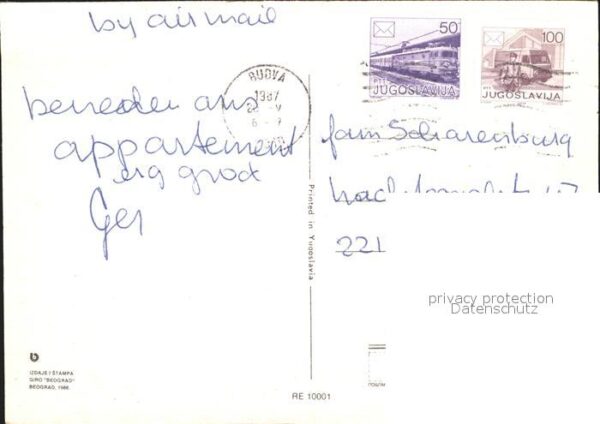 by air mail
50
JUGOSLAVIJA
100
JUGOSLAVIJA
BUDVA
1987
beneden ons
appartement
erg groot
Ger
fam Scharenburg
221
Printed in Yugoslavia
privacy protection
Datenschutz
IZDAJE I ŠTAMPA
GIRO "BEOGRAD"
BEOGRAD, 1986.
RE 10001